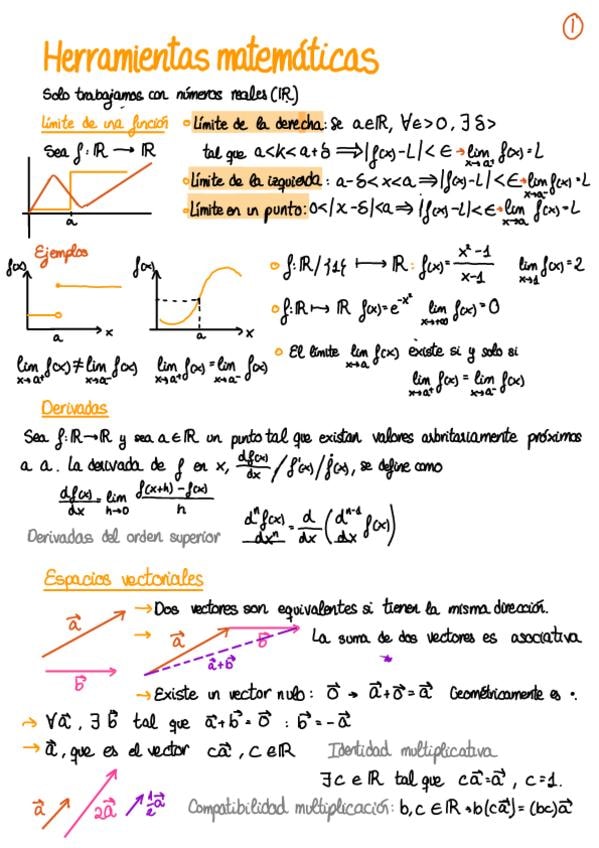 1
Herramientas matemáticas
Solo trabajamos con números reales (IR)
Límite de una función
Sea f: IR → IR
a
• Límite de la derecha: Se a∈IR, ∀ε>0, ∃ δ>
tal que a<k<a+δ ⟹ |f(x)-L|<ε → lim x→a⁺ f(x)=L
• Límite de la izquierda: a-δ<x<a ⟹ |f(x)-L|<ε → lim x→a⁻ f(x)=L
• Límite en un punto: 0<|x-δ|<a ⟹ |f(x)-L|<ε → lim x→a f(x)=L
Ejemplos
f(x) a x
f(x) a x
lim x→a⁺ f(x) ≠ lim x→a⁻ f(x) lim x→a⁺ f(x) = lim x→a⁻ f(x)
• f: IR/{1} ⟼ IR: f(x)= (x²-1)/(x-1) lim x→1 f(x)=2
• f: IR ↦ IR f(x)=e^(-x²) lim x→+∞ f(x)=0
• El límite lim x→a f(x) existe si y solo si
lim x→a⁺ f(x) = lim x→a⁻ f(x)
Derivadas
Sea f: IR→IR y sea a∈IR un punto tal que existan valores arbritariamente próximos
a a. La derivada de f en x, df(x)/dx / f'(x) / ḟ(x), se define como
df(x)/dx = lim h→0 (f(x+h)-f(x))/h
Derivadas del orden superior dⁿf(x)/dxⁿ = d/dx (dⁿ⁻¹/dx f(x))
Espacios vectoriales
→ Dos vectores son equivalentes si tienen la misma dirección.
a⃗ b⃗
→ a⃗ b⃗ a⃗+b⃗ La suma de dos vectores es asociativa
→ Existe un vector nulo: 0⃗ → a⃗+0⃗=a⃗ Geométricamente es •.
→ ∀a⃗, ∃ b⃗ tal que a⃗+b⃗=0⃗ : b⃗=-a⃗
→ a⃗, que es el vector ca⃗, c∈IR Identidad multiplicativa
∃c∈IR tal que ca⃗=a⃗, c=1.
a⃗ 2a⃗ ½a⃗ Compatibilidad multiplicación: b,c∈IR → b(ca⃗)=(bc)a⃗